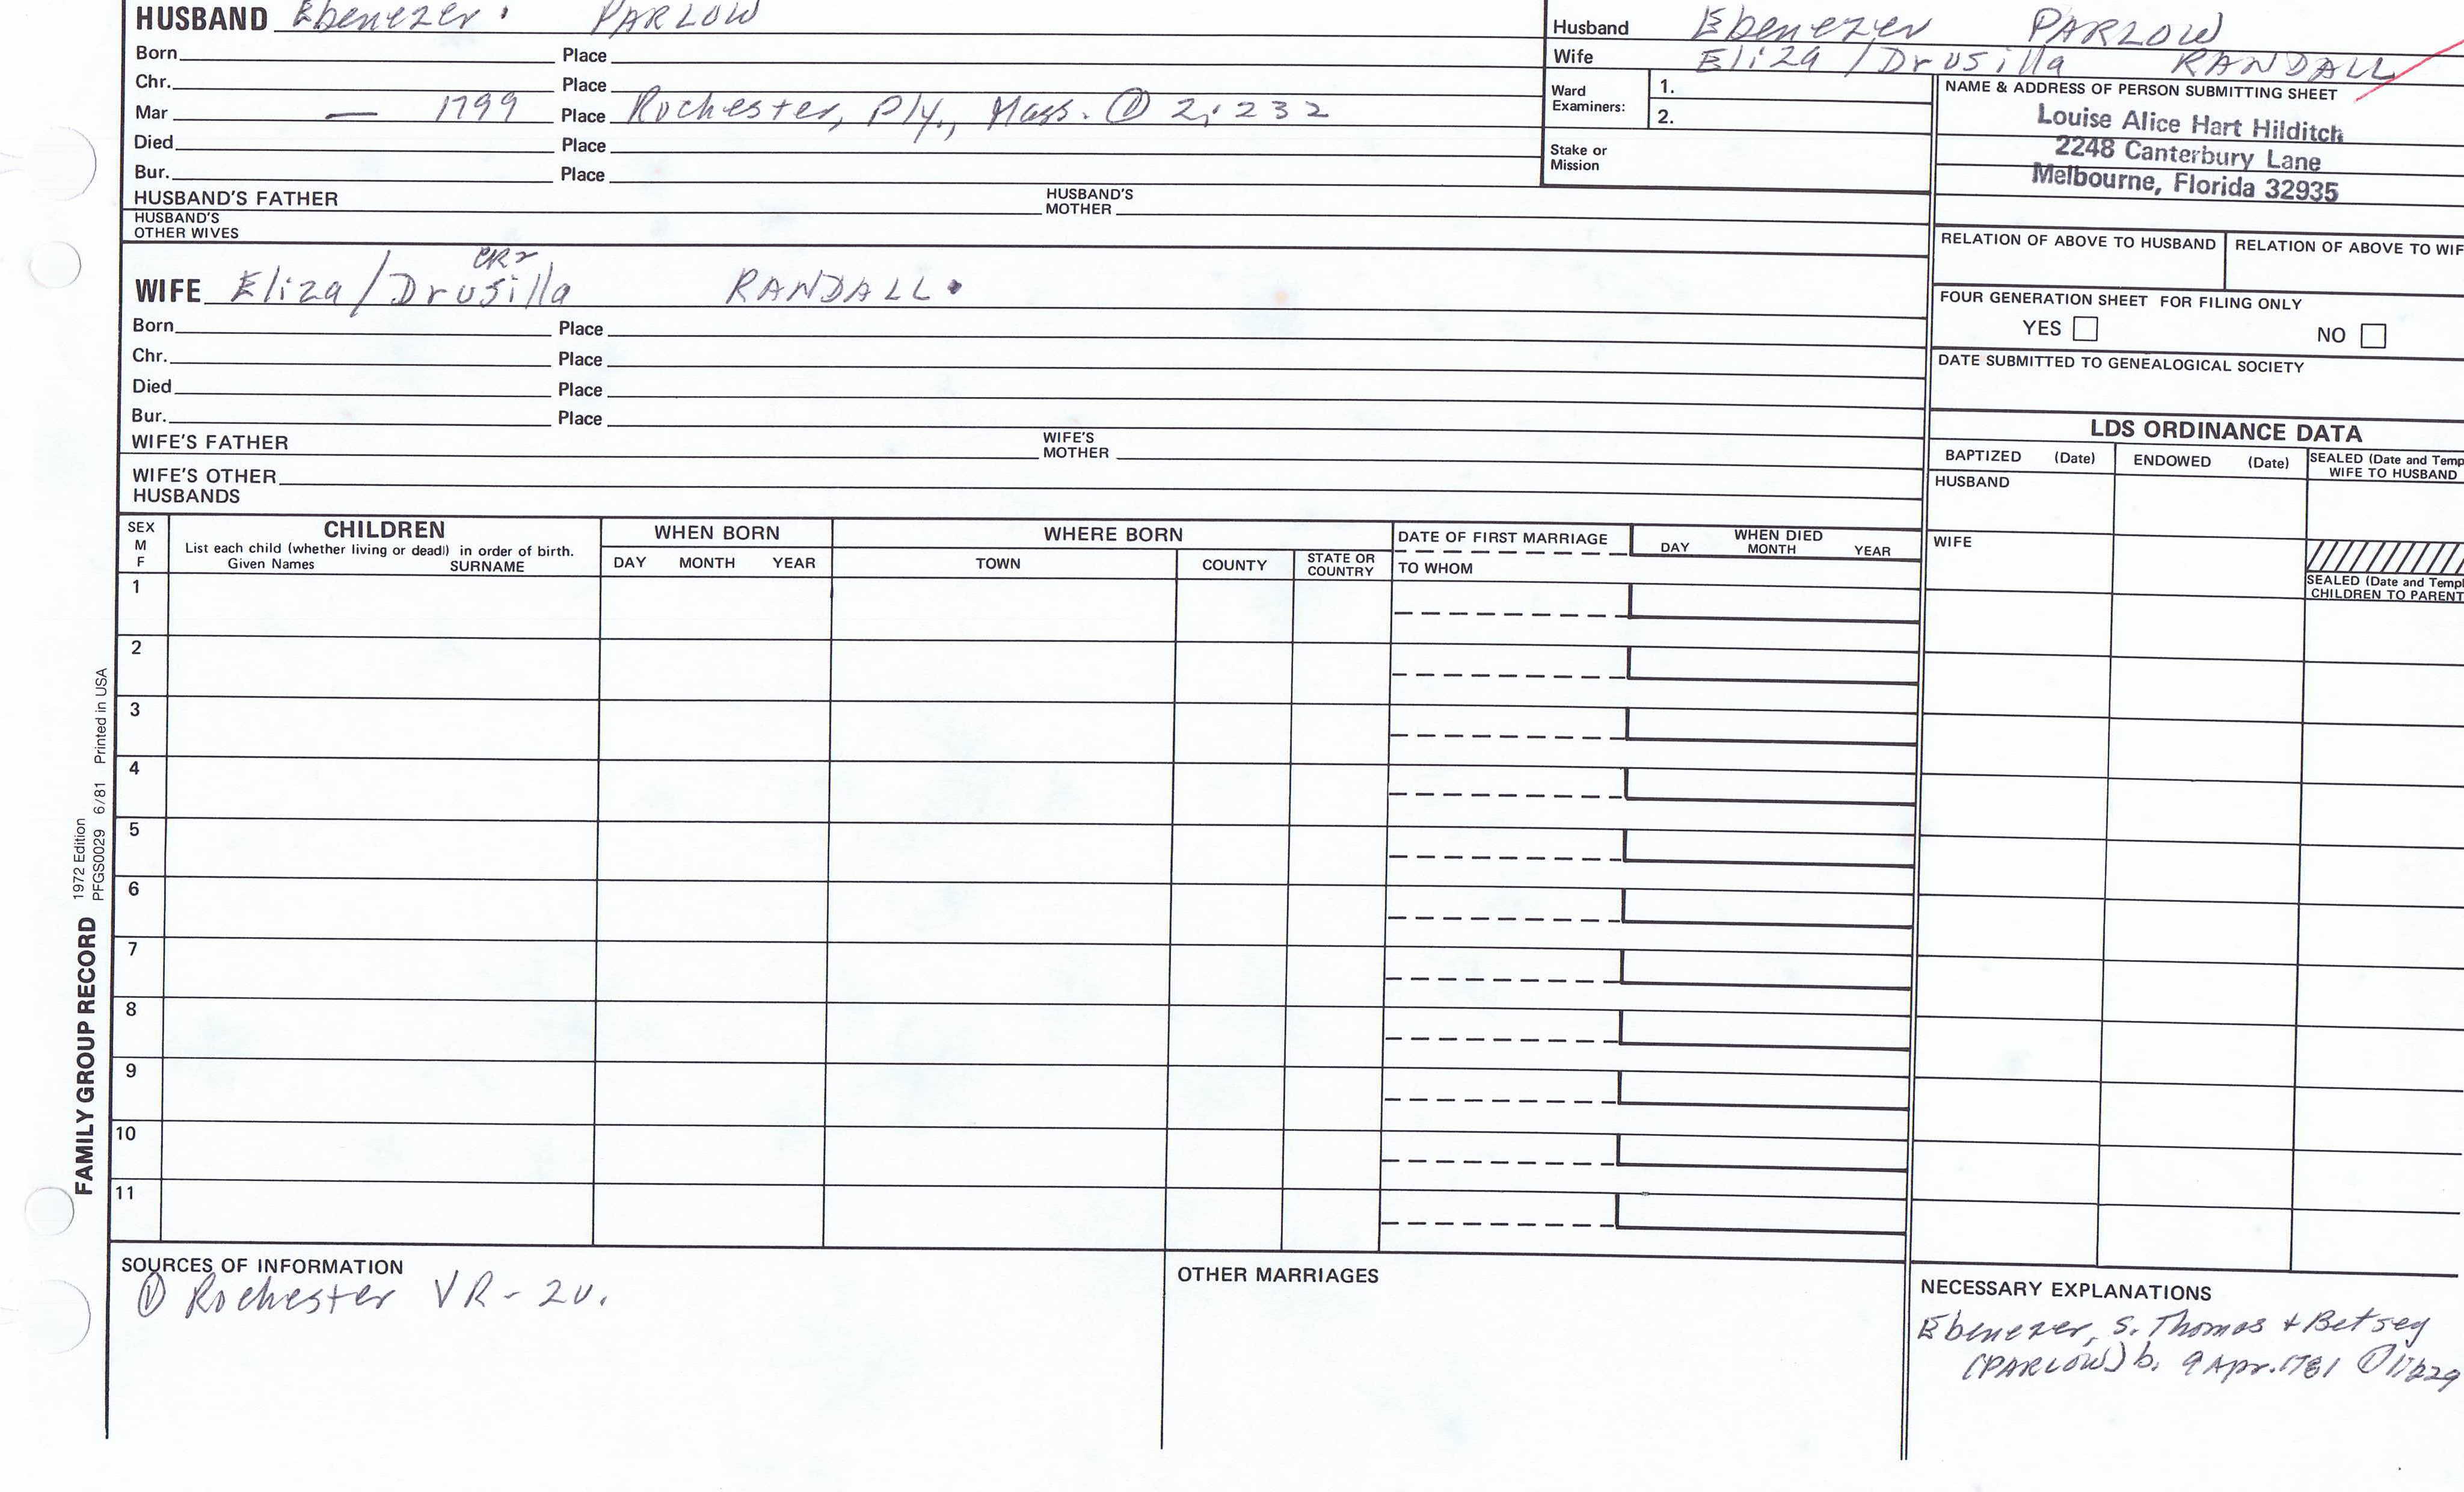 HUSBAND Ebenezer. PARLOW
Born Place
Chr. Place
Mar — 1799 Place Rochester, Ply., Mass. ① 2:232
Died Place
Bur. Place
HUSBAND'S FATHER HUSBAND'S MOTHER
HUSBAND'S OTHER WIVES
Husband Ebenezer PARLOW
Wife Eliza/Drusilla RANDALL
Ward Examiners: 1.
2.
Stake or Mission
NAME & ADDRESS OF PERSON SUBMITTING SHEET
Louise Alice Hart Hilditch
2248 Canterbury Lane
Melbourne, Florida 32935
RELATION OF ABOVE TO HUSBAND RELATION OF ABOVE TO WIF
FOUR GENERATION SHEET FOR FILING ONLY
YES NO
DATE SUBMITTED TO GENEALOGICAL SOCIETY
WIFE Eliza/Drusilla RANDALL.
Born Place
Chr. Place
Died Place
Bur. Place
WIFE'S FATHER WIFE'S MOTHER
WIFE'S OTHER HUSBANDS
LDS ORDINANCE DATA
BAPTIZED (Date) ENDOWED (Date) SEALED (Date and Temp
WIFE TO HUSBAND
HUSBAND
WIFE
SEALED (Date and Templ
CHILDREN TO PARENT
SEX M F
CHILDREN
List each child (whether living or dead) in order of birth.
Given Names SURNAME
WHEN BORN
DAY MONTH YEAR
WHERE BORN
TOWN COUNTY STATE OR COUNTRY
DATE OF FIRST MARRIAGE
TO WHOM
WHEN DIED
DAY MONTH YEAR
1
2
3
4
5
6
7
8
9
10
11
FAMILY GROUP RECORD
1972 Edition
PFGS0029 6/81 Printed in USA
SOURCES OF INFORMATION
① Rochester VR - 2v.
OTHER MARRIAGES
NECESSARY EXPLANATIONS
Ebenezer, s. Thomas + Betsey
(PARLOW) b. 9 Apr. 1781